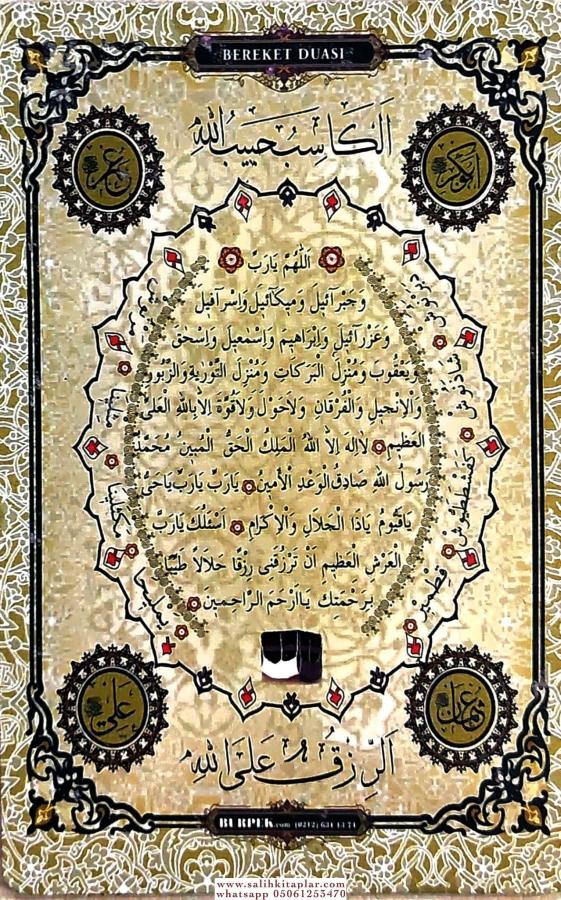 BEREKET DUASI
اَلْكَاسِبُ حَبِيبُ اللّٰهِ
ابوبكر
عمر
اَللّٰهُمَّ يَارَبِّ
وَجَبْرَآئِيلَ وَمِيكَآئِيلَ وَاِسْرَآفِيلَ
وَعَزْرَآئِيلَ وَاِبْرَاهِيمَ وَاِسْمٰعِيلَ وَاِسْحٰقَ
وَيَعْقُوبَ وَمُنْزِلَ الْبَرَكَاتِ وَمُنْزِلَ التَّوْرٰيةِ وَالزَّبُورِ
وَالْاِنْجِيلِ وَالْفُرْقَانِ وَلَاحَوْلَ وَلَاقُوَّةَ اِلَّابِاللّٰهِ الْعَلِيِّ
الْعَظِيمِ لَااِلٰهَ اِلَّا اللّٰهُ الْمَلِكُ الْحَقُّ الْمُبِينُ مُحَمَّدٌ
رَسُولُ اللّٰهِ صَادِقُ الْوَعْدِ الْاَمِينُ يَارَبِّ يَارَبِّ يَاحَىُّ
يَاقَيُّومُ يَاذَا الْجَلَالِ وَالْاِكْرَامِ اَسْئَلُكَ يَارَبَّ
الْعَرْشِ الْعَظِيمِ اَنْ تَرْزُقَنِى رِزْقًا حَلَالًا طَيِّبًا
بِرَحْمَتِكَ يَااَرْحَمَ الرَّاحِمِينَ
مرنوش
شاذنوش
كفشططيوش
قطمير
مكثلينا
يمليخا
عثمان
علي
اَلرِّزْقُ عَلَى اللّٰهِ
BURPEK.com (0212) 631 13 71
www.salihkitaplar.com
whatsapp 05061253470